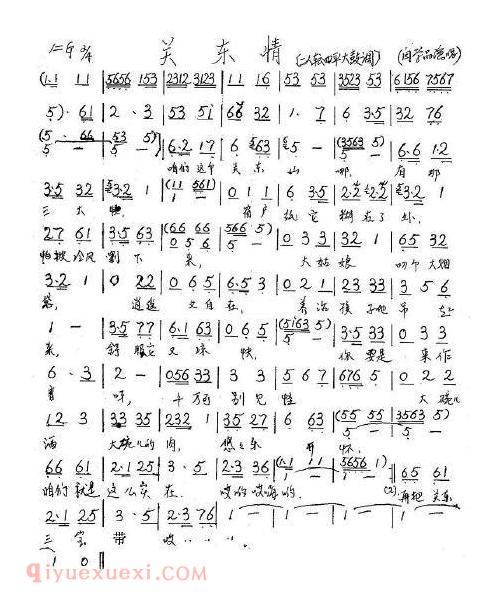 1=G 2/4 关东情 (二人转四平大鼓调) (闫学晶演唱)
(1·1 11 | 5656 153 | 2312 3123 | 11 16 | 53 53 | 3523 53 | 6156 7567
5) · 61 | 2 · 3 | 53 51 | 66 32 | 1 · 7 | 6 3·5 | 32 76
(5 · 66 | 53 5) | 6·2 17 | 6 63 | 5 - | (3563 5) | 6·6 1·2
咱们这个 关东 山 哪, 有那
3·5 32 | 3·2 1 | (11 561) | 0 1 1 | 6 3·5 | 2·2 2·5 | 3·2 1
三大 怪, 窗户 纸它 糊在了外,
27 61 | 3·5 63 | 0 5 6 | 5 - | 0 3 3 | 32 1 | 65 32
怕被冷风 割下 来, 大姑娘 叼个大烟
3·2 1 | 0 22 | 0 6 5 | 6·5 3 | 0 2 1 | 2 33 | 3 5 6
袋, 逍遥 又自在, 养活孩子吊起
1 - | 3·5 77 | 6·1 63 | 0 6 5 | (5163 5) | 3·5 33 | 0 3 3
来, 舒服它又凉快, 你要是 来作
6 · 3 | 2 - | 0 56 33 | 3 5 | 6 7 | 676 5 | 0 2 2
客呀, 千万别见怪 大碗儿
12 3 | 33 35 | 232 1 | 3·5 27 | 6 63 | (55 55 | 3563 5)
酒 大碗儿的肉, 您乐 开怀.
66 61 | 2·1 25 | 3 · 5 | 2·3 36 | (1·1 1 | 5656 1) | 65 61
咱们就是 这么实在. 哎哟哎嗨哟. (2)再把关东
2·1 25 | 3 · 5 | 2·3 76 | 1 - | 1 - | 1 - | 1 -
三宝带 哎
1 0 ‖
qiyuexuexi.com